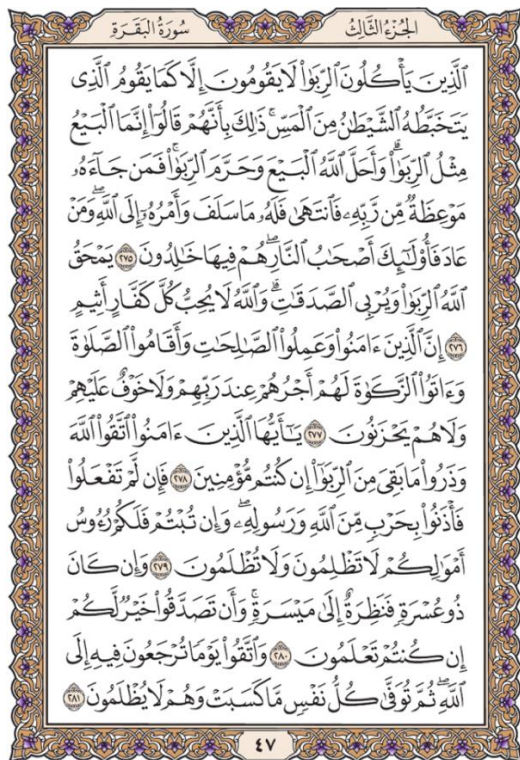 الجُزْءُ الثَّالِثُ
سُورَةُ البَقَرَةِ
ٱلَّذِينَ يَأْكُلُونَ ٱلرِّبَوٰاْ لَا يَقُومُونَ إِلَّا كَمَا يَقُومُ ٱلَّذِى
يَتَخَبَّطُهُ ٱلشَّيْطَٰنُ مِنَ ٱلْمَسِّۚ ذَٰلِكَ بِأَنَّهُمْ قَالُوٓاْ إِنَّمَا ٱلْبَيْعُ
مِثْلُ ٱلرِّبَوٰاْۗ وَأَحَلَّ ٱللَّهُ ٱلْبَيْعَ وَحَرَّمَ ٱلرِّبَوٰاْۚ فَمَن جَآءَهُۥ
مَوْعِظَةٌ مِّن رَّبِّهِۦ فَٱنتَهَىٰ فَلَهُۥ مَا سَلَفَ وَأَمْرُهُۥٓ إِلَى ٱللَّهِۖ وَمَنْ
عَادَ فَأُوْلَٰٓئِكَ أَصْحَٰبُ ٱلنَّارِۖ هُمْ فِيهَا خَٰلِدُونَ ٢٧٥ يَمْحَقُ
ٱللَّهُ ٱلرِّبَوٰاْ وَيُرْبِى ٱلصَّدَقَٰتِۗ وَٱللَّهُ لَا يُحِبُّ كُلَّ كَفَّارٍ أَثِيمٍ
٢٧٦ إِنَّ ٱلَّذِينَ ءَامَنُواْ وَعَمِلُواْ ٱلصَّٰلِحَٰتِ وَأَقَامُواْ ٱلصَّلَوٰةَ
وَءَاتَوُاْ ٱلزَّكَوٰةَ لَهُمْ أَجْرُهُمْ عِندَ رَبِّهِمْ وَلَا خَوْفٌ عَلَيْهِمْ
وَلَا هُمْ يَحْزَنُونَ ٢٧٧ يَٰٓأَيُّهَا ٱلَّذِينَ ءَامَنُواْ ٱتَّقُواْ ٱللَّهَ
وَذَرُواْ مَا بَقِىَ مِنَ ٱلرِّبَوٰٓاْ إِن كُنتُم مُّؤْمِنِينَ ٢٧٨ فَإِن لَّمْ تَفْعَلُواْ
فَأْذَنُواْ بِحَرْبٍ مِّنَ ٱللَّهِ وَرَسُولِهِۦۖ وَإِن تُبْتُمْ فَلَكُمْ رُءُوسُ
أَمْوَٰلِكُمْ لَا تَظْلِمُونَ وَلَا تُظْلَمُونَ ٢٧٩ وَإِن كَانَ
ذُو عُسْرَةٍ فَنَظِرَةٌ إِلَىٰ مَيْسَرَةٍۚ وَأَن تَصَدَّقُواْ خَيْرٌ لَّكُمْ
إِن كُنتُمْ تَعْلَمُونَ ٢٨٠ وَٱتَّقُواْ يَوْمًا تُرْجَعُونَ فِيهِ إِلَى
ٱللَّهِۖ ثُمَّ تُوَفَّىٰ كُلُّ نَفْسٍ مَّا كَسَبَتْ وَهُمْ لَا يُظْلَمُونَ ٢٨١
٤٧